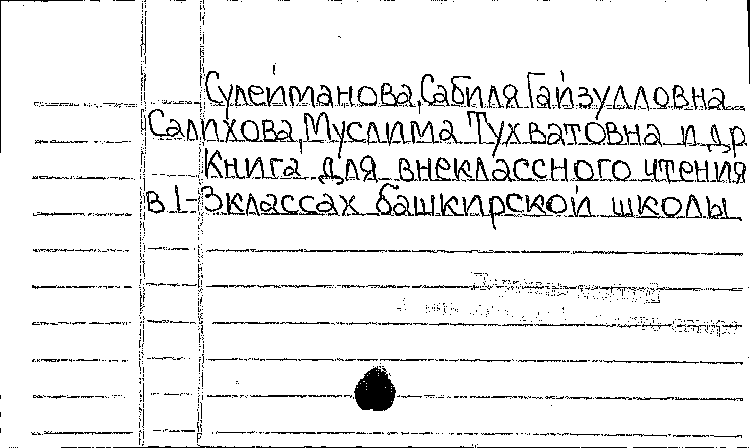 Сулейманова, Сабиля Гайзулловна
Салихова, Муслима Тухватовна и др
Книга для внеклассного чтения
в 1-3 классах башкирской школы